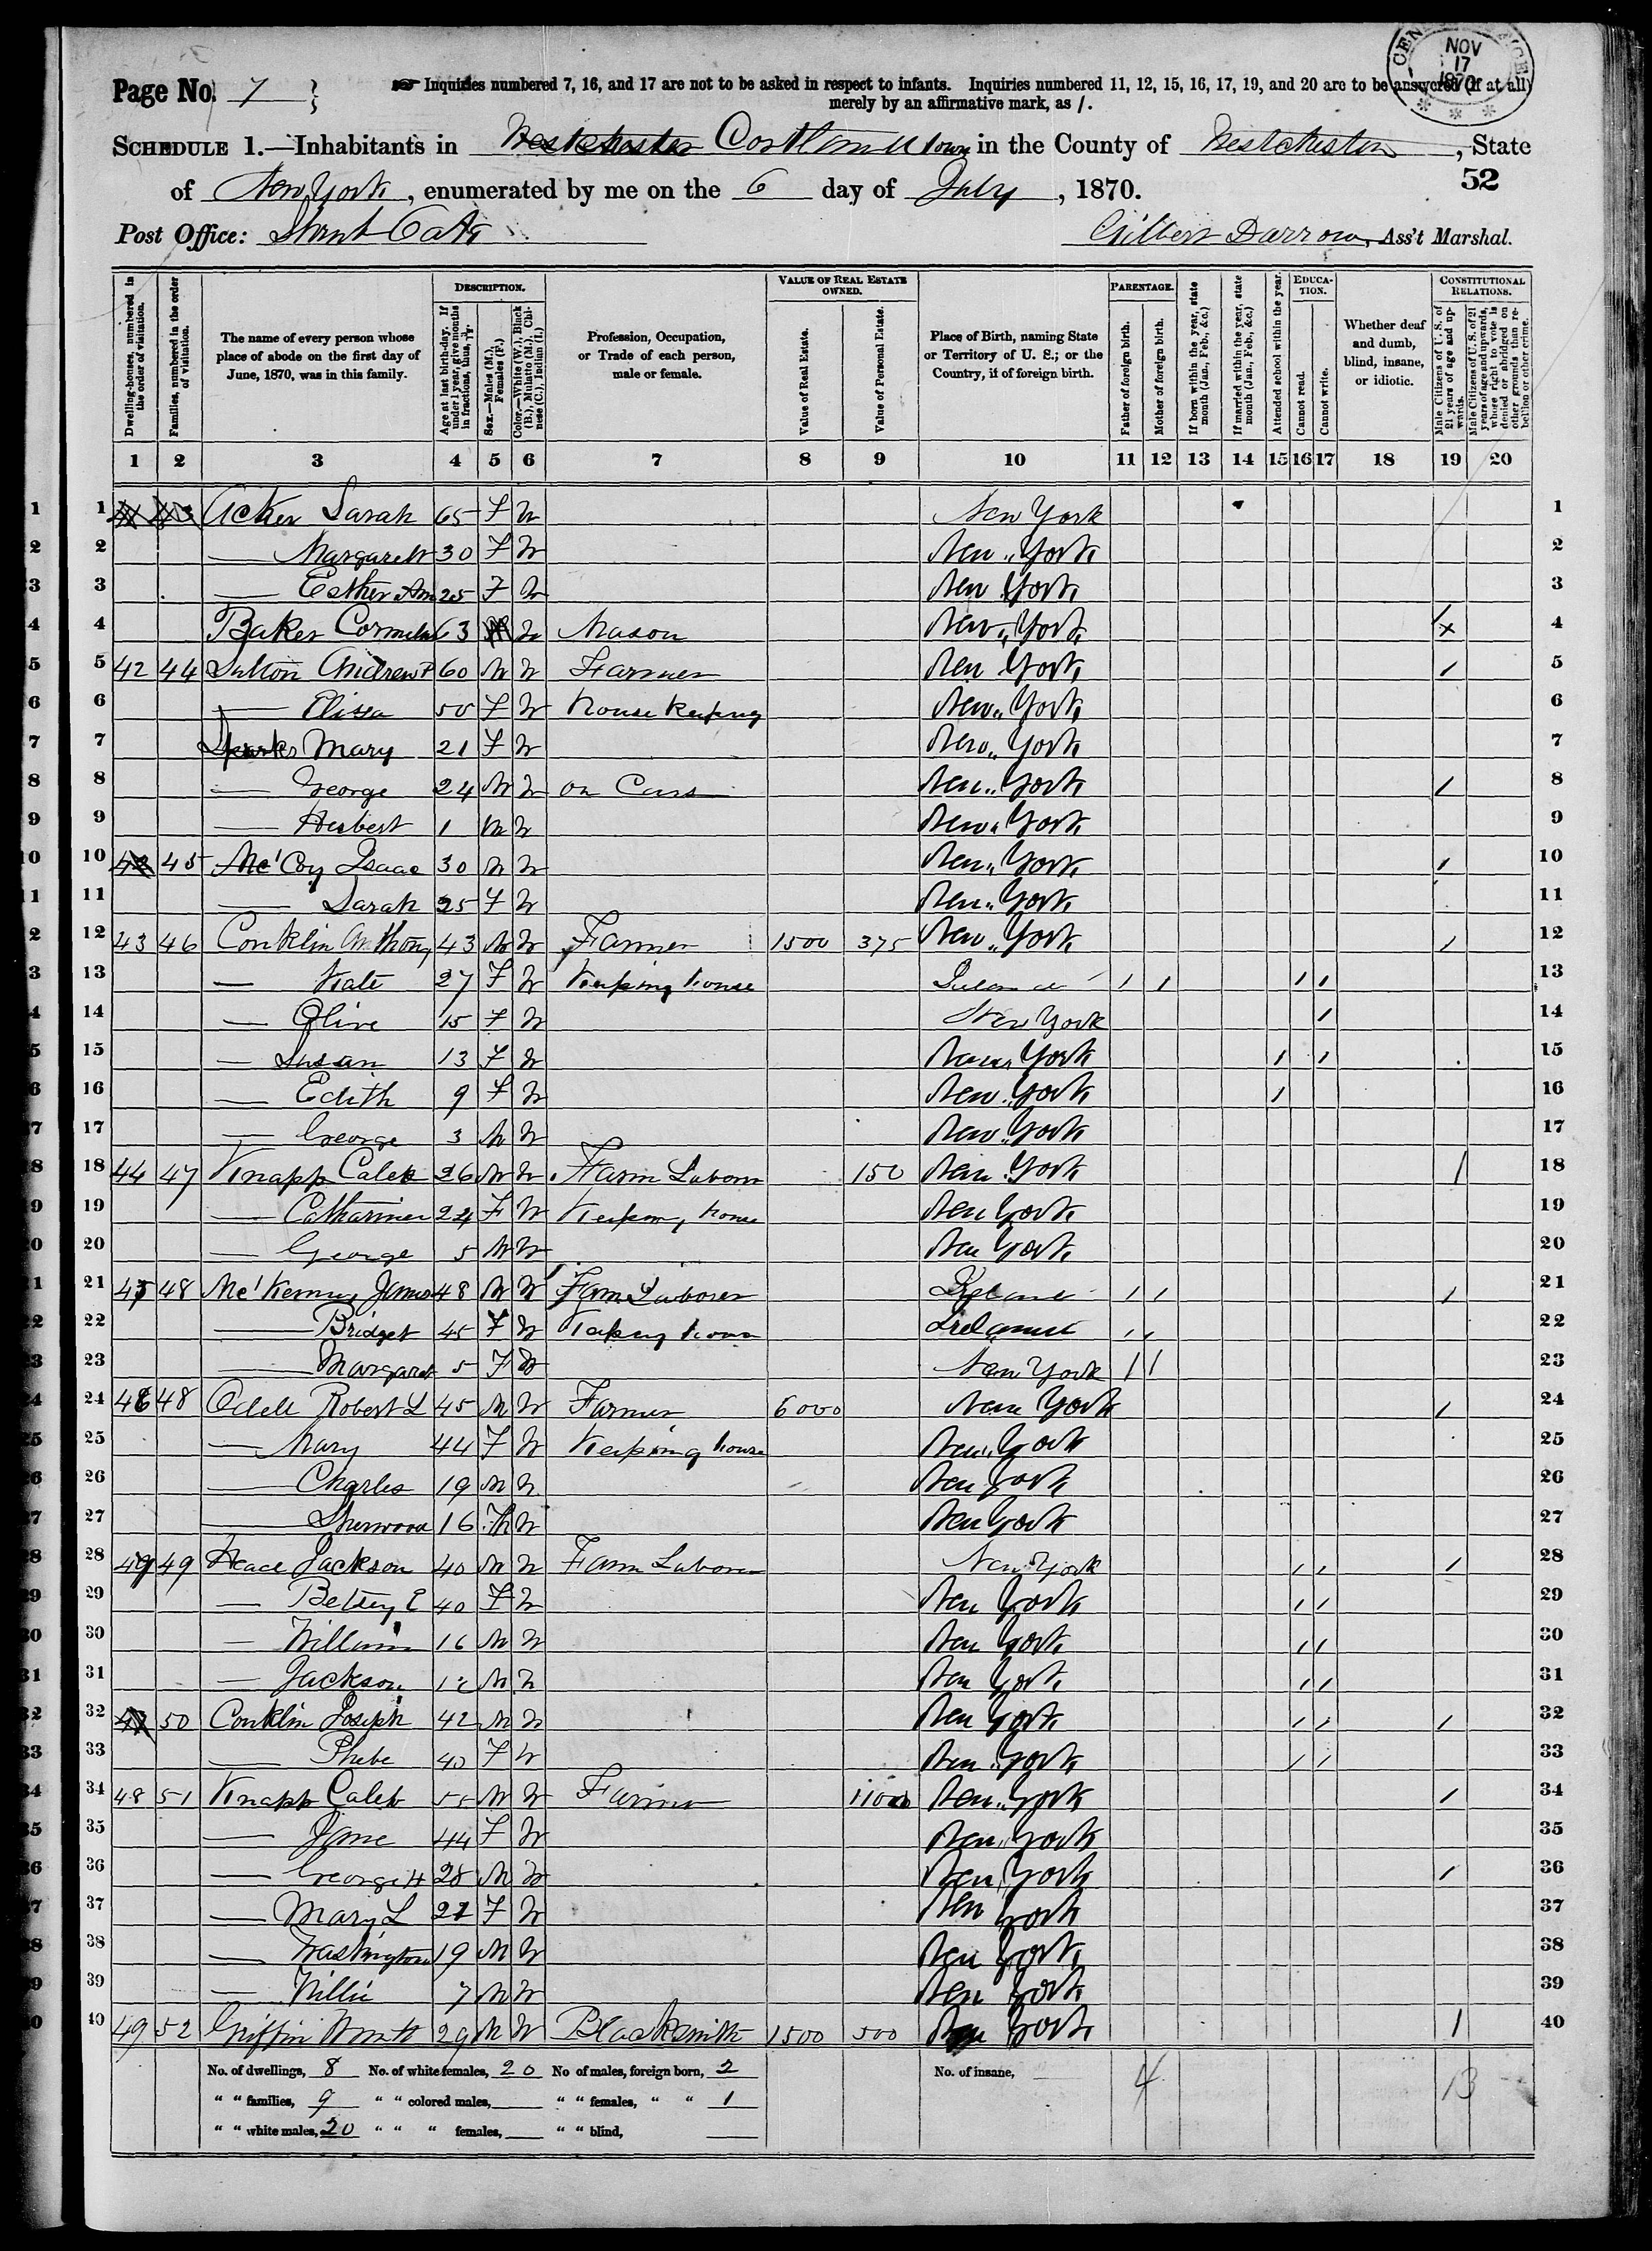 Page No. 7
Inquiries numbered 7, 16, and 17 are not to be asked in respect to infants. Inquiries numbered 11, 12, 15, 16, 17, 19, and 20 are to be answered (if at all)
merely by an affirmative mark, as /.
NOV
17
1870
SCHEDULE 1.—Inhabitants in Westchester Cortlandt town in the County of Westchester, State
of New York, enumerated by me on the 6 day of July, 1870.
52
Post Office:
Gilbert Darrow, Ass't Marshal.
Dwelling-houses, numbered in the order of visitation.
Families, numbered in the order of visitation.
The name of every person whose place of abode on the first day of June, 1870, was in this family.
DESCRIPTION.
Age at last birth-day. If under 1 year, give months in fractions, thus, 3/12.
Sex.—Males (M.), Females (F.)
Color.—White (W.), Black (B.), Mulatto (M.), Chinese (C.), Indian (I.)
Profession, Occupation, or Trade of each person, male or female.
VALUE OF REAL ESTATE OWNED.
Value of Real Estate.
Value of Personal Estate.
Place of Birth, naming State or Territory of U. S.; or the Country, if of foreign birth.
PARENTAGE.
Father of foreign birth.
Mother of foreign birth.
If born within the year, state month (Jan., Feb., &c.)
If married within the year, state month (Jan., Feb., &c.)
Attended school within the year.
EDUCATION.
Cannot read.
Cannot write.
Whether deaf and dumb, blind, insane, or idiotic.
CONSTITUTIONAL RELATIONS.
Male Citizens of U. S. of 21 years of age and upwards.
Male Citizens of U. S. of 21 years of age and upwards, whose right to vote is denied or abridged on other grounds than rebellion or other crime.
1 2 3 4 5 6 7 8 9 10 11 12 13 14 15 16 17 18 19 20
1 Acker Sarah 65 F W New York 1
2 — Margarett 30 F W New York 2
3 — Esther Ann 25 F W New York 3
4 Baker 63 M W Mason New York 4
5 42 44 Sutton Andrew P 60 M W Farmer New York / 5
6 — Elisa 50 F W House Keeping New York 6
7 Sparks Mary 21 F W New York 7
8 — George 24 M W on Cars New York / 8
9 — Herbert 1 M W New York 9
10 45 Mc'Coy Isaac 30 M W New York / 10
11 — Sarah 25 F W New York 11
12 43 46 Conklin Anthony 43 M W Farmer 1500 375 New York / 12
13 — Kate 27 F W Keeping house Ireland / / / / 13
14 — Olive 15 F W New York / 14
15 — Susan 13 F W New York / / 15
16 — Edith 9 F W New York / 16
17 — George 3 M W New York 17
18 44 47 Knapp Caleb 26 M W Farm Laborer 150 New York / 18
19 — Catharine 24 F W Keeping house New York 19
20 — George 5 M W New York 20
21 45 48 Mc' James 48 M W Farm Laborer Ireland / / / 21
22 — Bridget 45 F W Keeping house Ireland / / 22
23 — Margaret 5 F W New York / / 23
24 46 48 Odell Robert L 45 M W Farmer 6000 New York / 24
25 — Mary 44 F W Keeping house New York 25
26 — Charles 19 M W New York 26
27 — Sherwood 16 M W New York 27
28 49 Jackson 40 M W Farm Laborer New York / / / 28
29 — Betsey E 40 F W New York / / 29
30 — William 16 M W New York / / 30
31 — Jackson M W New York / / 31
32 50 Conklin Joseph 42 M W New York / / / 32
33 — Phebe 40 F W New York / / 33
34 48 51 Knapp Caleb 55 M W Farmer New York / 34
35 — Jane 44 F W New York 35
36 — George H 28 M W New York / 36
37 — Mary L F W New York 37
38 — Washington 19 M W New York 38
39 — Willie 7 M W New York 39
40 49 52 Griffin 29 M W Blacksmith 1500 500 New York / 40
No. of dwellings, 8 No. of white females, 20 No of males, foreign born, 2 No. of insane, 4 13
" " families, 9 " " colored males, " " females, " " 1
" " white males, 20 " " " females, " " blind,